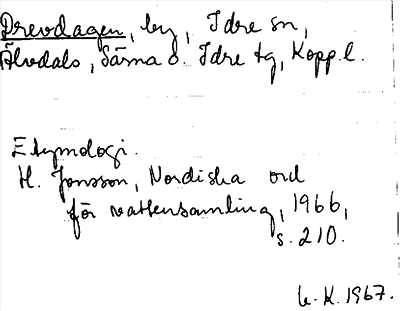 Drevdagen, by, Idre sn,
Älvdals, Särna o. Idre tg, Kopp.l.
Etymologi.
H. Jonsson, Nordiska ord
för vattensamling, 1966,
s. 210.
L. K. 1967.